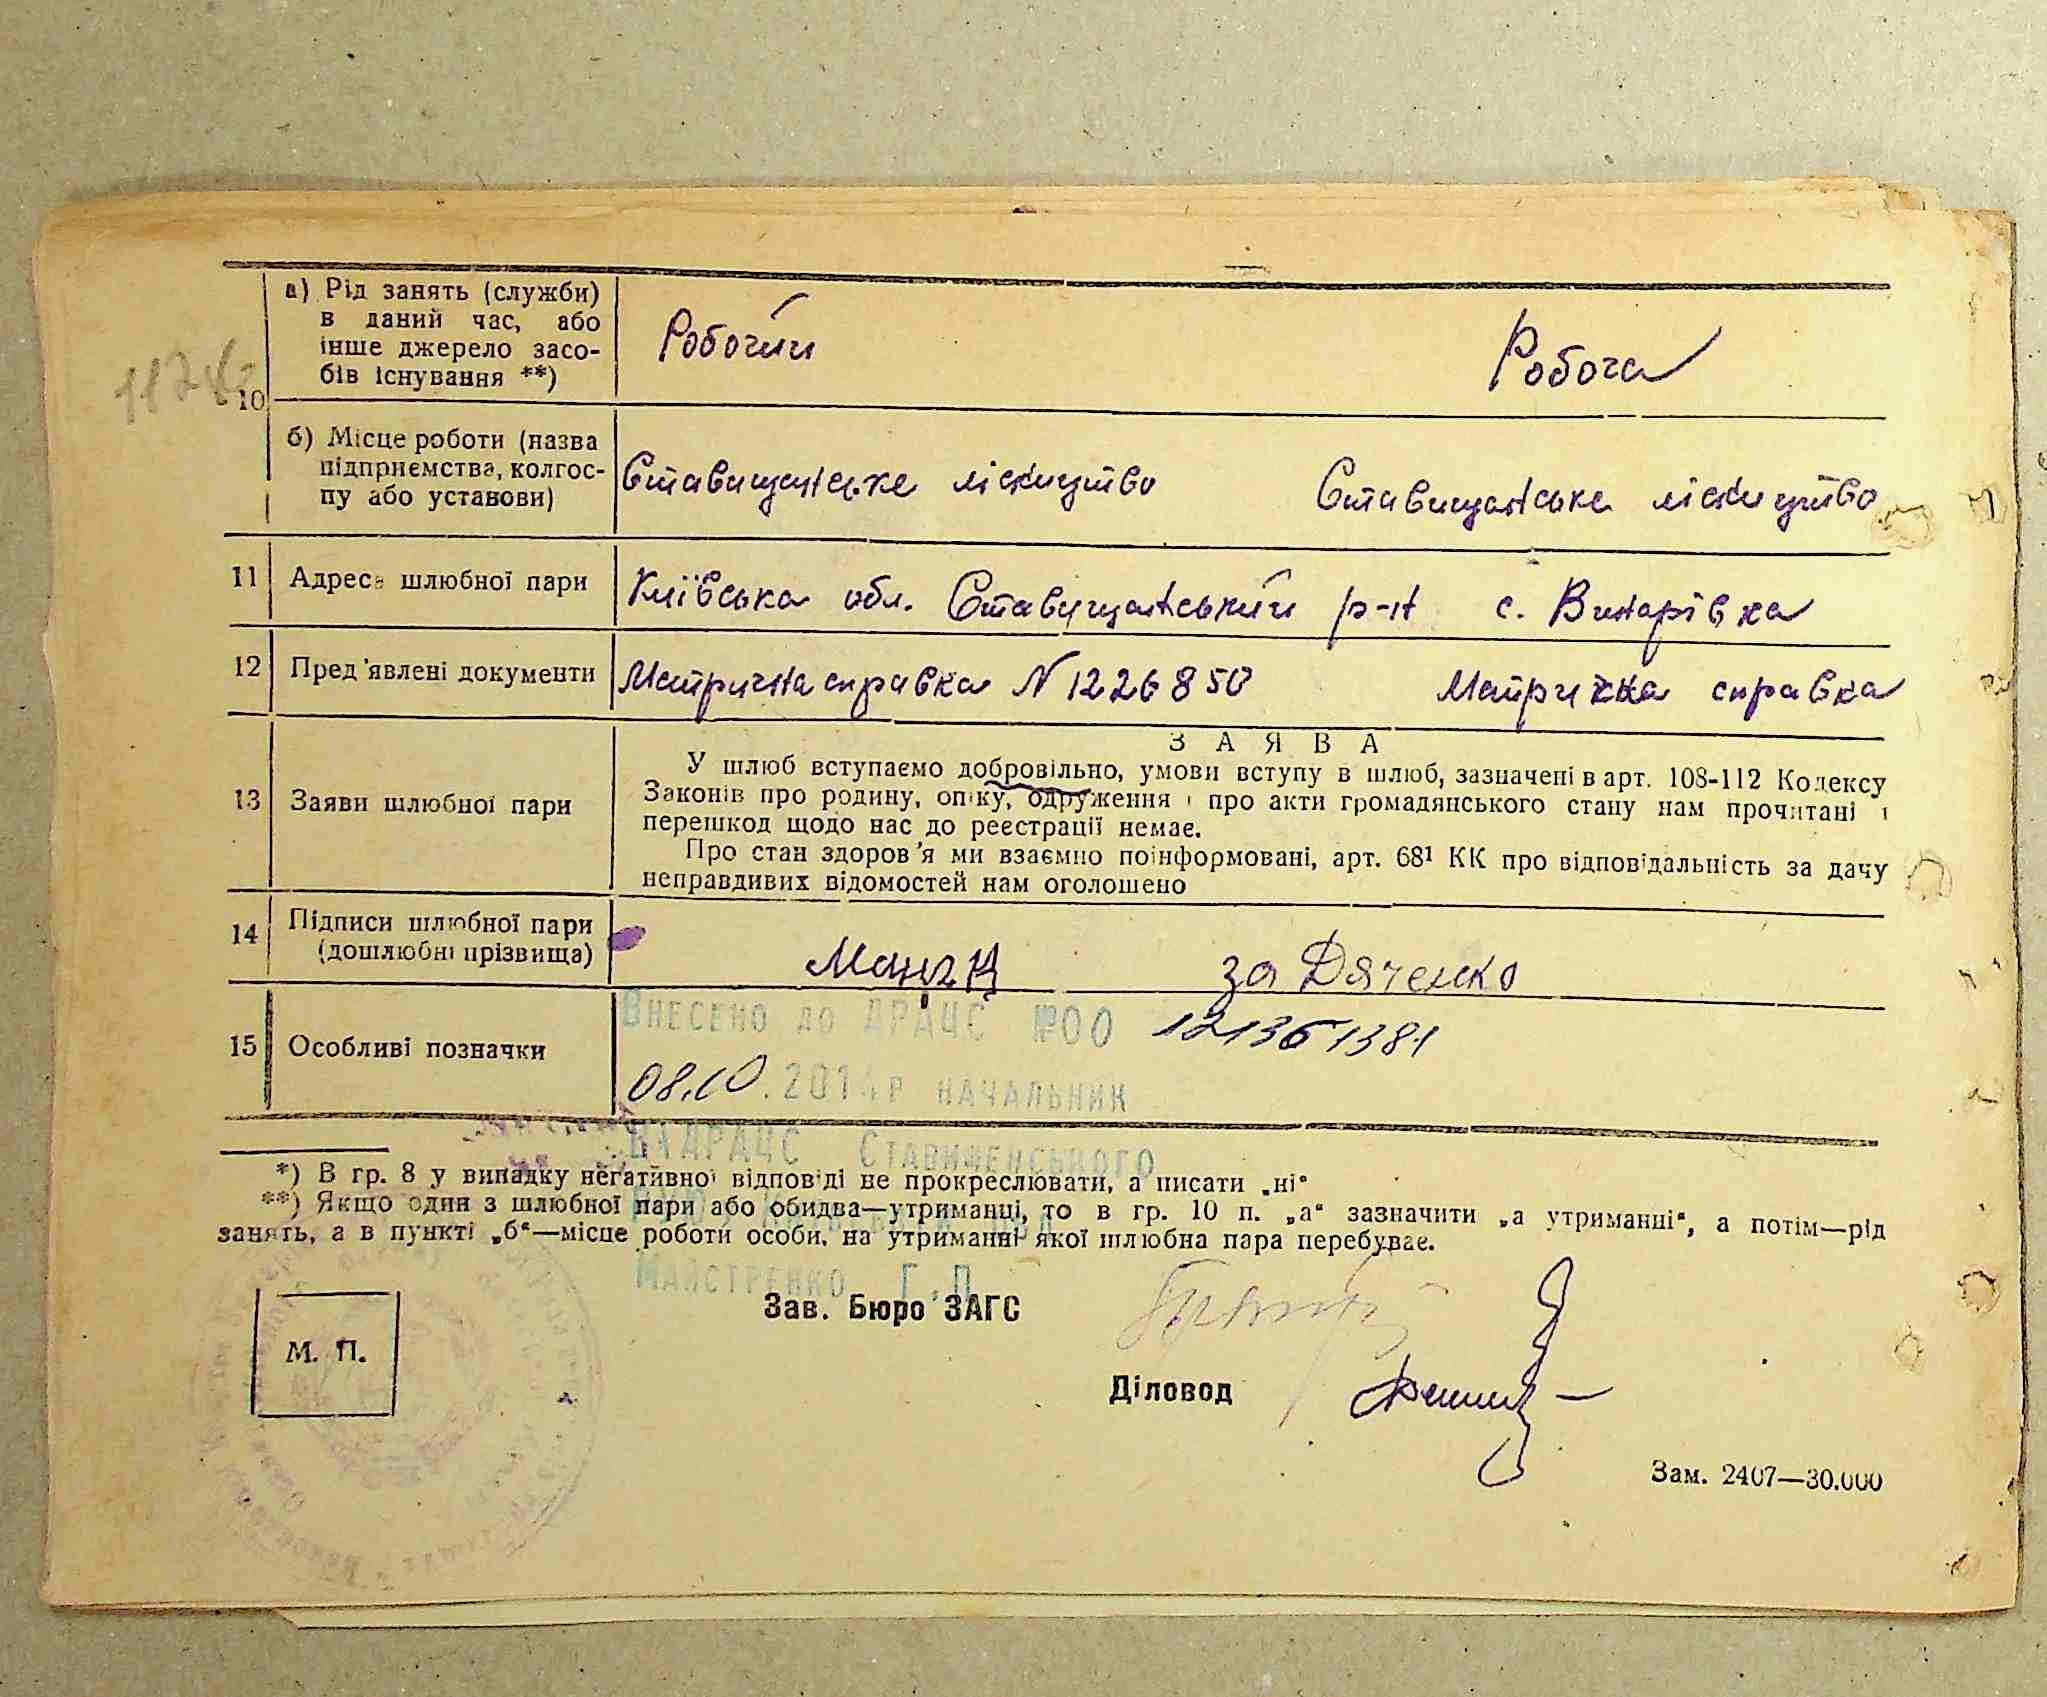 а) Рід занять (служби)
в даний час, або
інше джерело засо-
бів існування **)
Робочий
Робоча
10
б) Місце роботи (назва
підприємства, колгос-
пу або установи)
Ставищанське лісництво
Ставищанське лісництво
11 Адреса шлюбної пари
Київська обл. Ставищанський р-н с. Винарівка
12 Пред'явлені документи
Матрична справка N 1226850
Матрична справка
13 Заяви шлюбної пари
ЗАЯВА
У шлюб вступаємо добровільно, умови вступу в шлюб, зазначені в арт. 108-112 Кодексу
Законів про родину, опіку, одруження і про акти громадянського стану нам прочитані і
перешкод щодо нас до реєстрації немає.
Про стан здоров'я ми взаємно поінформовані, арт. 68¹ КК про відповідальність за дачу
неправдивих відомостей нам оголошено
14 Підписи шлюбної пари
(дошлюбні прізвища)
за Дяченко
15 Особливі позначки
Внесено до ДРАЦС №00 121361381
08.10.2014р начальник
ВДРАЦС Ставищенського
РУЮ Київської обл
Майстренко Г.П.
*) В гр. 8 у випадку негативної відповіді не прокреслювати, а писати „ні“
**) Якщо один з шлюбної пари або обидва—утриманці, то в гр. 10 п. „а“ зазначити „а утриманні“, а потім—рід
занять, а в пункті „б“—місце роботи особи, на утриманні якої шлюбна пара перебуває.
М. П.
Зав. Бюро ЗАГС
Діловод
Зам. 2407—30.000